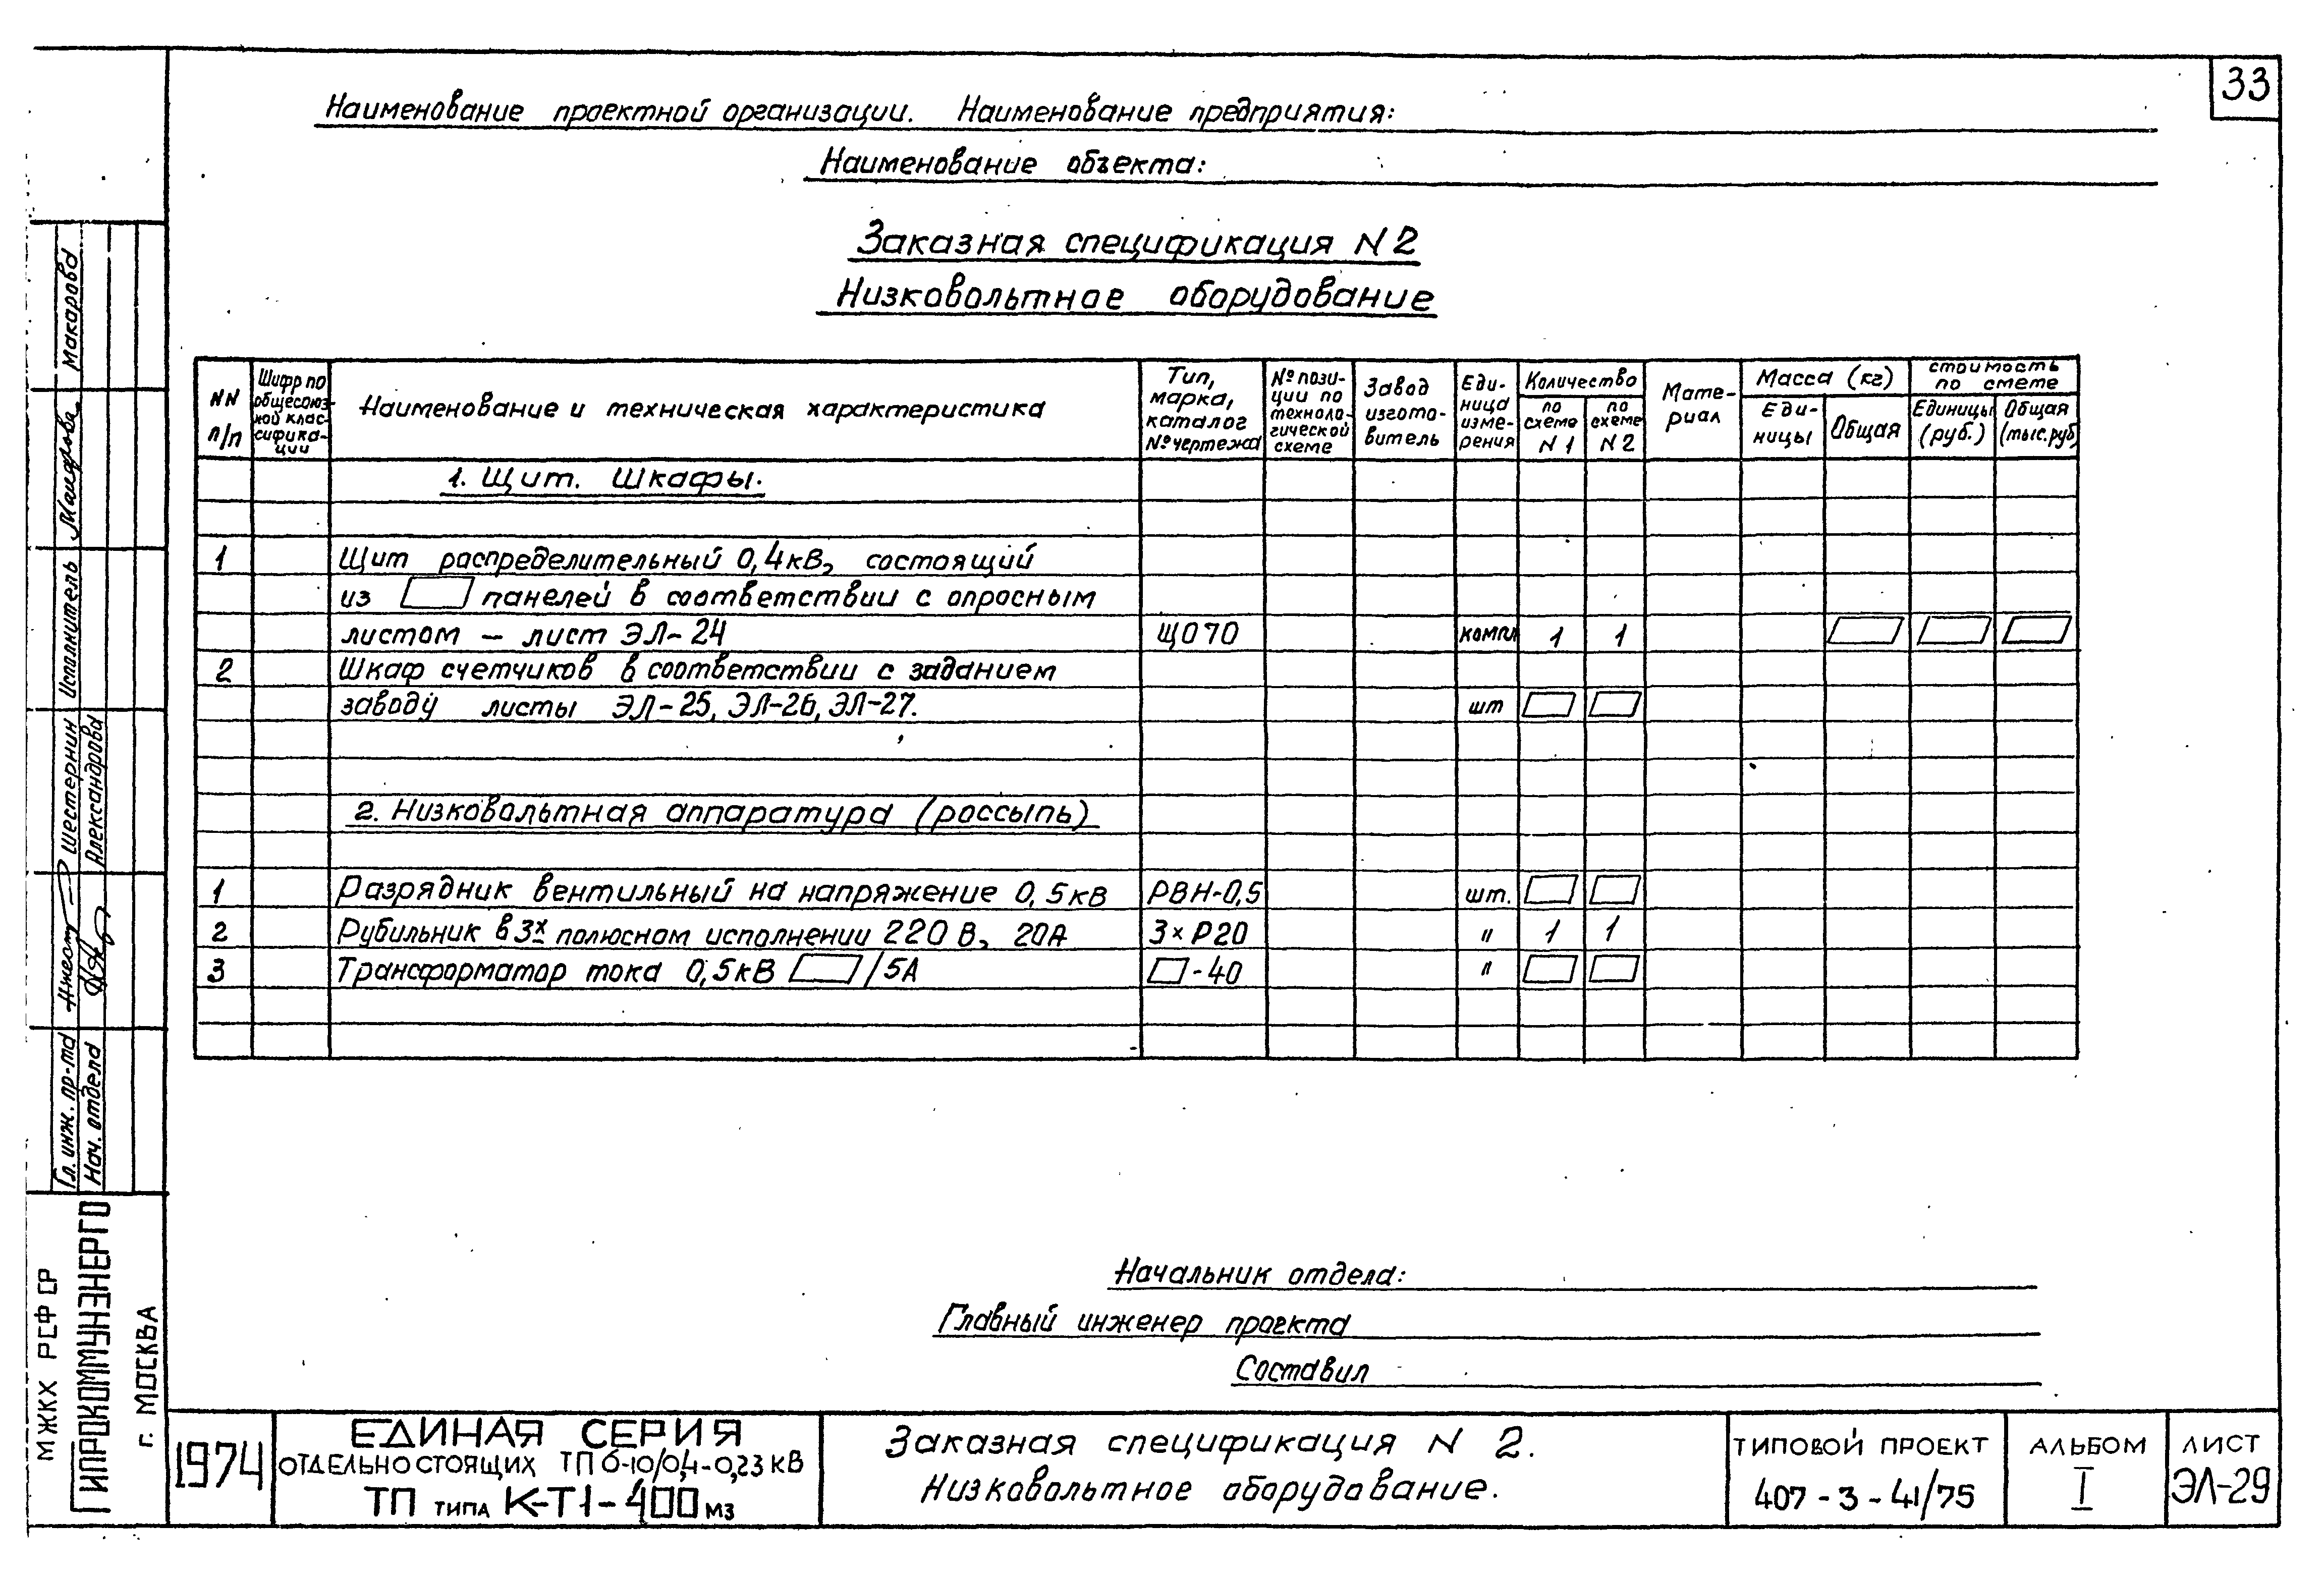 33
Наименование проектной организации. Наименование предприятия:
Наименование объекта:
Заказная спецификация N2
Низковольтное оборудование
NN п/п
Шифр по общесоюзной классификации
Наименование и техническая характеристика
Тип, марка, каталог № чертежа
№ позиции по технологической схеме
Завод изготовитель
Единица измерения
Количество
по схеме N1
по схеме N2
Материал
Масса (кг)
Единицы
Общая
стоимость по смете
Единицы (руб.)
Общая (тыс.руб)
1. Щит. Шкафы.
1 Щит распределительный 0,4кВ, состоящий
из панелей в соответствии с опросным
листом – лист ЭЛ-24 ЩО70 компл 1 1
2 Шкаф счетчиков в соответствии с заданием
заводу листы ЭЛ-25, ЭЛ-26, ЭЛ-27. шт
2. Низковольтная аппаратура (россыпь)
1 Разрядник вентильный на напряжение 0,5кВ РВН-0,5 шт.
2 Рубильник в 3х полюсном исполнении 220В, 20А 3×Р20 " 1 1
3 Трансформатор тока 0,5кВ /5А -40 "
Начальник отдела:
Главный инженер проекта
Составил
1974
ЕДИНАЯ СЕРИЯ
ОТДЕЛЬНОСТОЯЩИХ ТП 6-10/0,4-0,23 КВ
ТП ТИПА К-Т1-400 МЗ
Заказная спецификация N 2.
Низковольтное оборудование.
ТИПОВОЙ ПРОЕКТ
407-3-41/75
АЛЬБОМ
I
ЛИСТ
ЭЛ-29
МЖКХ РСФСР
ГИПРОКОММУНЭНЕРГО
г. МОСКВА
Гл. инж. пр-та Шестернин
Нач. отдела Александрова
Исполнитель Макарова